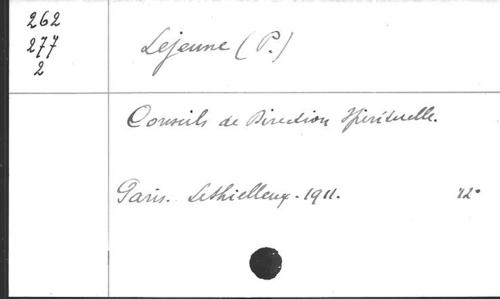 262
277
2
Lejeune (P.)
Conseils de Direction Spirituelle.
Paris. Lethielleux. 1911. 12°